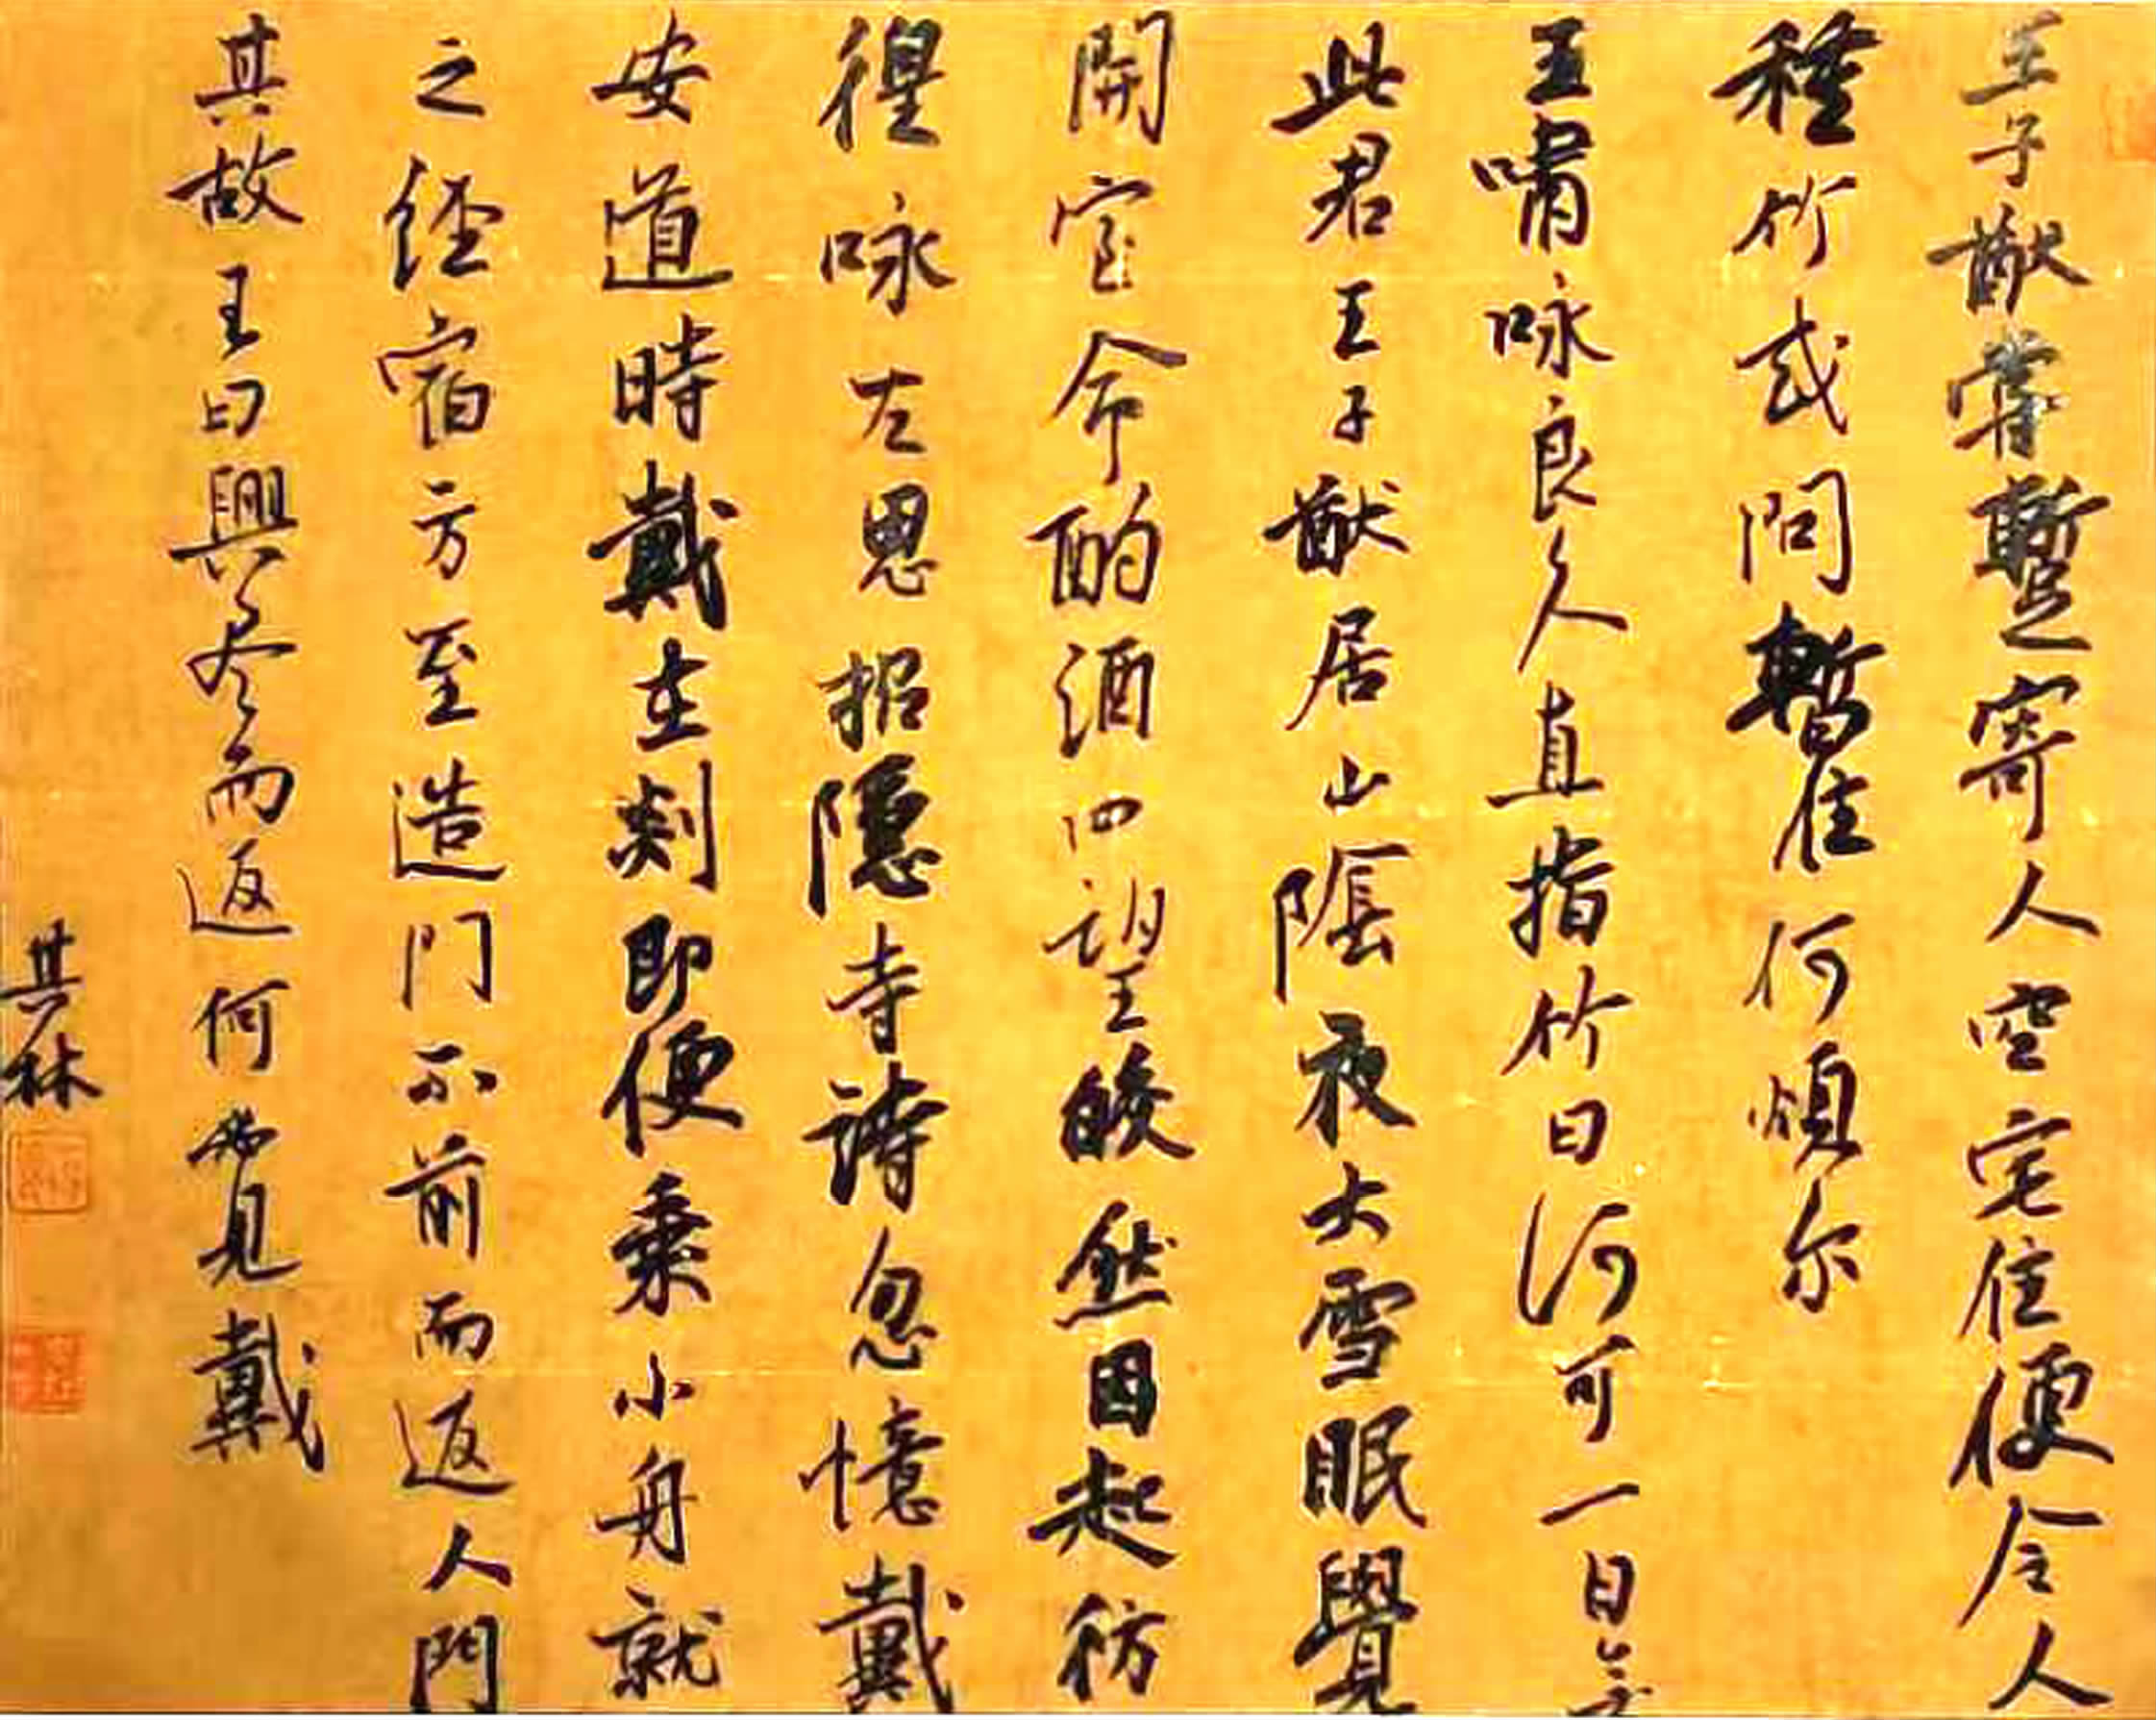 王子猷嘗暫寄人空宅住便令人
種竹或問暫住何煩尔
王嘯咏良久直指竹曰何可一日無
此君王子猷居山陰夜大雪眠覺
開室命酌酒四望皎然因起彷
徨咏左思招隱寺詩忽憶戴
安道時戴在剡即便乘小舟就
之經宿方至造門不前而返人問
其故王曰興尽而返何必見戴
其林